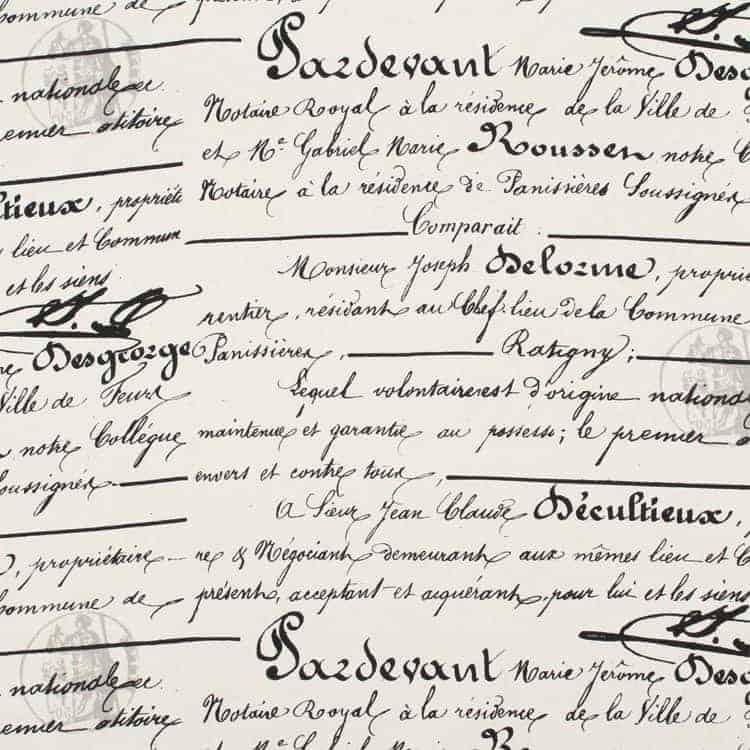 Commune de
Pardevant Marie Jerôme Desg
nationale
Notaire Royal à la résidence de la Ville de
premier
et Me. Gabriel Marie Roussen notre C
ltieux, propriéte
Notaire à la résidence de Panissières Soussignés
lieu et Commun
Comparait.
et les siens
Monsieur Joseph Delorme, proprié
rentier, résidant au Chef-lieu de la Commune
Desgeorge
Panissières, Ratigny;
Ville de Feurs
Lequel volontaire est d'origine national
notre Collégue
maintenue et garantie au possess; le premier
Soussignés
envers et contre tous,
A Sieur Jean Claude Décultieux,
, propriétaire
re & Négociant demeurant aux mêmes lieu et C
Commune de
présent, acceptant et aiquérant, pour lui et les siens
Pardevant Marie Jerôme Desg
nationale
Notaire Royal à la résidence de la Ville de
premier
et Me. Gabriel Marie